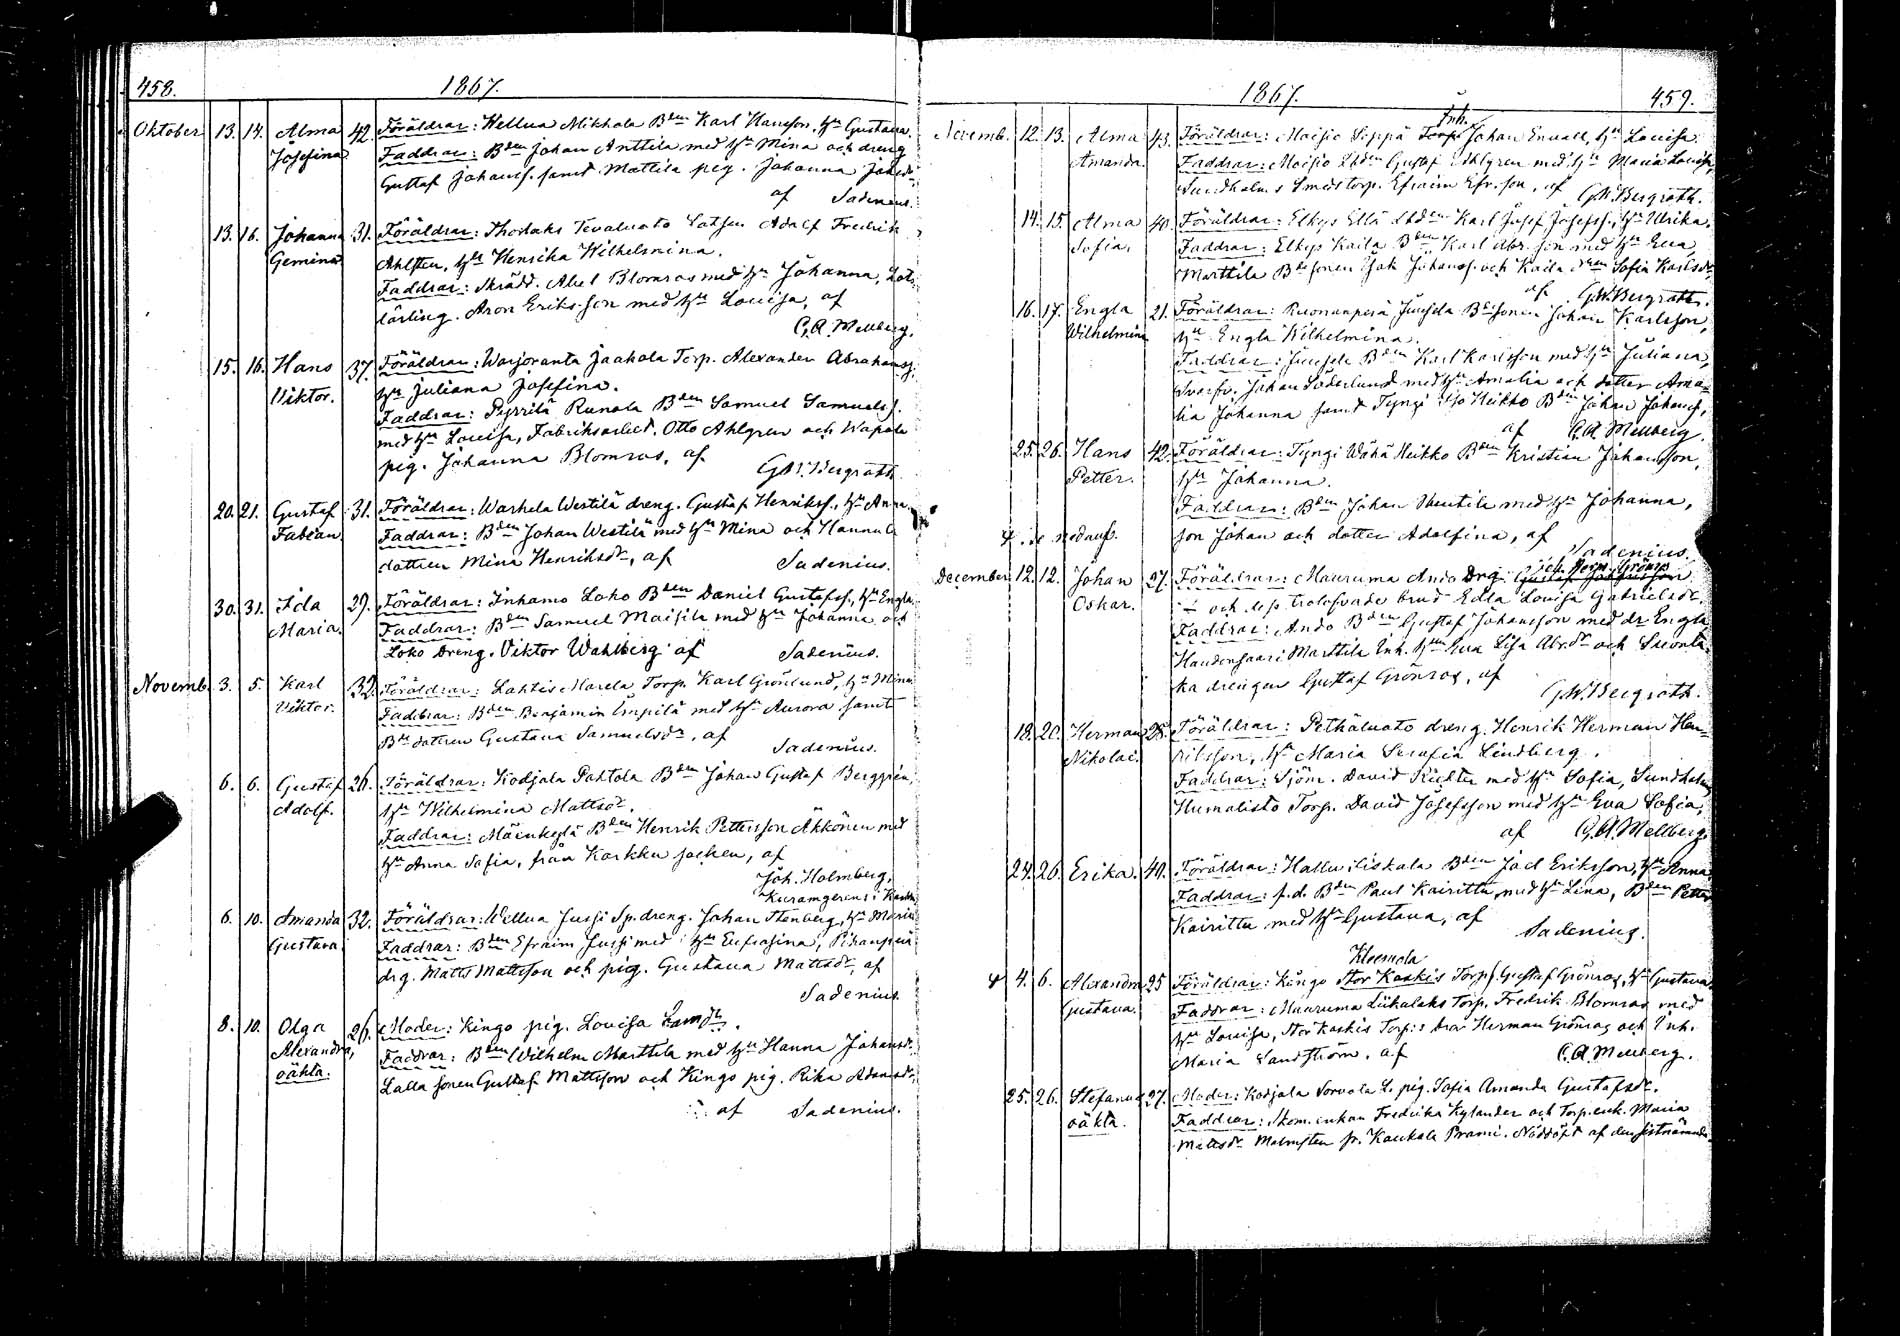 458. 1867.
Oktober 13. 14. Alma Josefina 42. Föräldrar: Hellua Mikkola Bden Karl Hansson, hu Gustava.
Faddrar: Bden Johan Anttila med hu Mina och dreng
Gustaf Johanss. samt Mattila pig. Johanna Johsdr,
af Sadenius.
13. 16. Johanna Gemina 31. Föräldrar: Tevaluoto Lotsen Adolf Fredrik
Ahlsten, hu Henrika Wilhelmina.
Faddrar: Skrädd. Abel Blomros med hu Johanna, Lots
lärling. Aron Eriksson med hu Lovisa, af
C.A. Mellberg.
15. 16. Hans Viktor. 37. Föräldrar: Warjoranta Jaakola Torp. Alexander Abrahamss.
hu Juliana Josefina.
Faddrar: Pyrrilä Runola Bden Samuel Samuelss.
med hu Lovisa, Fabriksarbet. Otto Ahlgren och
pig. Johanna Blomros, af
G.W. Bergroth.
20. 21. Gustaf Fabian. 31. Föräldrar: Warhela Westilä dreng. Gustaf Henrikss., hu Anna.
Faddrar: Bden Johan Westilä med hu Mina och Hannula
dottren Mina Henriksdr, af Sadenius.
30. 31. Ida Maria. 29. Föräldrar: Inhamo Loko Bden Daniel Gustafss., hu Engla.
Faddrar: Bden Samuel Maisila med hu Johanna och
Loko Dreng. Viktor Wahlberg af Sadenius.
Novemb. 3. 5. Karl Viktor. 32. Föräldrar: Lahtis Marela Torp. Karl Grönlund, hu Mina
Faddrar: Bden Benjamin Impilä med hu Aurora samt
Bde dottren Gustava Samuelsdr, af Sadenius.
6. 6. Gustaf Adolf. 26. Föräldrar: Kodjala Pahtola Bden Johan Gustaf Berggren,
hu Wilhelmina Mattsdr.
Faddrar: Mäenkylä Bden Henrik Pettersson Äkkönen med
hu Anna Sofia, från Karkku socken, af
Joh. Holmberg.
6. 10. Amanda Gustava. 32. Föräldrar: Wellua Jussi Sp.dreng. Johan Stenberg, hu Maria
Faddrar: Bden Efraim Jussi med hu Eufrosina,
drg. Matts Mattsson och pig. Gustava Mattsdr, af
Sadenius.
8. 10. Olga Alexandra, oäkta. 26. Moder: Kingo pig. Lovisa Samdr.
Faddrar: Bden Wilhelm Marttila med hu Hanna Johansdr.
Lalla sonen Gustaf Mattsson och Kingo pig. Rika Adamsdr,
af Sadenius.
1867. 459.
Novemb. 12. 13. Alma Amanda. 43. Föräldrar: Moisio Seppä Torp. Inh. Johan Envall, hu Lovisa.
Faddrar: Moisio Gustaf Edhlgren med hu Maria Lovisa,
Sundholms Smedstorp. Efraim Efr.son, af G.W. Bergroth.
14. 15. Alma Sofia. 40. Föräldrar: Elkys Ellä Karl Josef Josefss., hu Ulrika.
Faddrar: Elkys Kaila Bden Karl Abr.son med hu Eva
Marttila Bdesonen Isak Johanss. och Kaila Sofia Karlsdr
af G.W. Bergroth.
16. 17. Engla Wilhelmina 21. Föräldrar: Ruonanperä Juusela Bdesonen Johan Karlsson,
hu Engla Wilhelmina.
Faddrar: Juusela Bden Karl Karlsson med hu Juliana,
Johan Söderlund med hu Amalia och dotter Ama-
lia Johanna samt Tyngi Heikko Bden Johan Johanss,
af C.A. Mellberg.
25. 26. Hans Petter. 42. Föräldrar: Tyngi Wähä Heikko Bden Kristian Johansson,
hu Johanna.
Faddrar: Bden Johan med hu Johanna,
son Johan och dotter Adolfina, af
Sadenius.
December 12. 12. Johan Oskar. 27. Föräldrar: Mauruma Ando Drg. Gustaf Johansson
och trolofvade brud Edla Lovisa Gabrielsdr.
Faddrar: Ando Bden Gustaf Johansson med dr. Engla
Haudonsaari Marttila Enk. Eva Lisa Abr.dr och Suonta-
ka drengen Gustaf Grönros, af
G.W. Bergroth.
18. 20. Herman Nikolai. 28. Föräldrar: Petkäluoto dreng. Henrik Herman Hen-
riksson, hu Maria Serafia Lindberg.
Faddrar: Sjöm. David Richter med hu Sofia, Sundholm
Humalisto Torp. David Josefsson med hu Eva Sofia,
af C.A. Mellberg.
24. 26. Erika. 40. Föräldrar: Hallu Eskola Bden Joel Eriksson, hu Anna
Faddrar: f.d. Bden Paul Kairittu med hu Lina, Bden Petter
Kairittu med hu Gustava, af Sadenius.
Kleemola
4. 6. Alexandra Gustava. 25 Föräldrar: Kingo Stor Kaskis Torp. Gustaf Grönros, hu Gustava
Faddrar: Mauruma Liikalaks Torp. Fredrik Blomros med
hu Lovisa, Stor Kaskis Torp:s bror Herman Grönros och Inh.
Maria Sandström, af C.A. Mellberg.
25. 26. Stefanus oäkta. 27. Moder: Kodjala Sorvola L. pig. Sofia Amanda Gustafsdr.
Faddrar: Skom. enkan Fredrika Kylander och Torp. enk. Maria
Mattsdr Malmsten fr. Kaukola Prami. Nöddöpt af den sistnämnda.